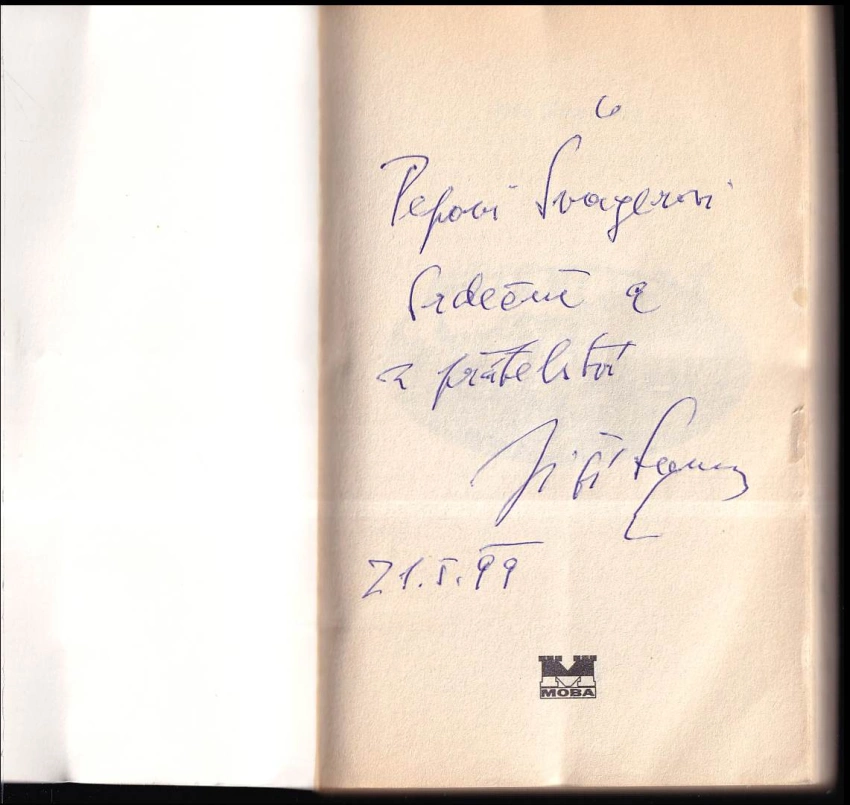 Pepovi Švagerovi
Srdečně a
z přátelství
Jiří
21.5.99
MOBA